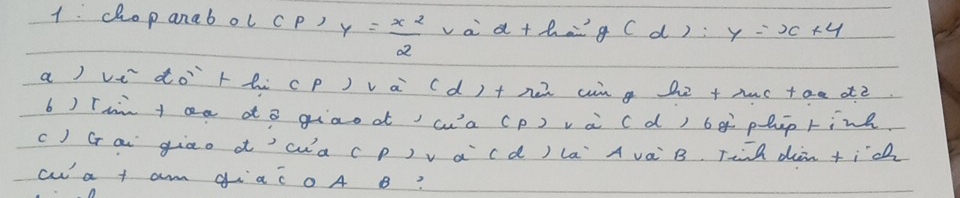 1: cho parabol (P) y = x²/2 và đt hẳng (d): y = x + 4
a) vẽ đồ thị (P) và (d) trên cùng hệ trục toạ độ.
b) Tìm toạ độ giao đ' của (P) và (d) bằng phép tính.
c) Gọi giao đ' của (P) và (d) là A và B. Tính diện tích
của tam giác OAB?